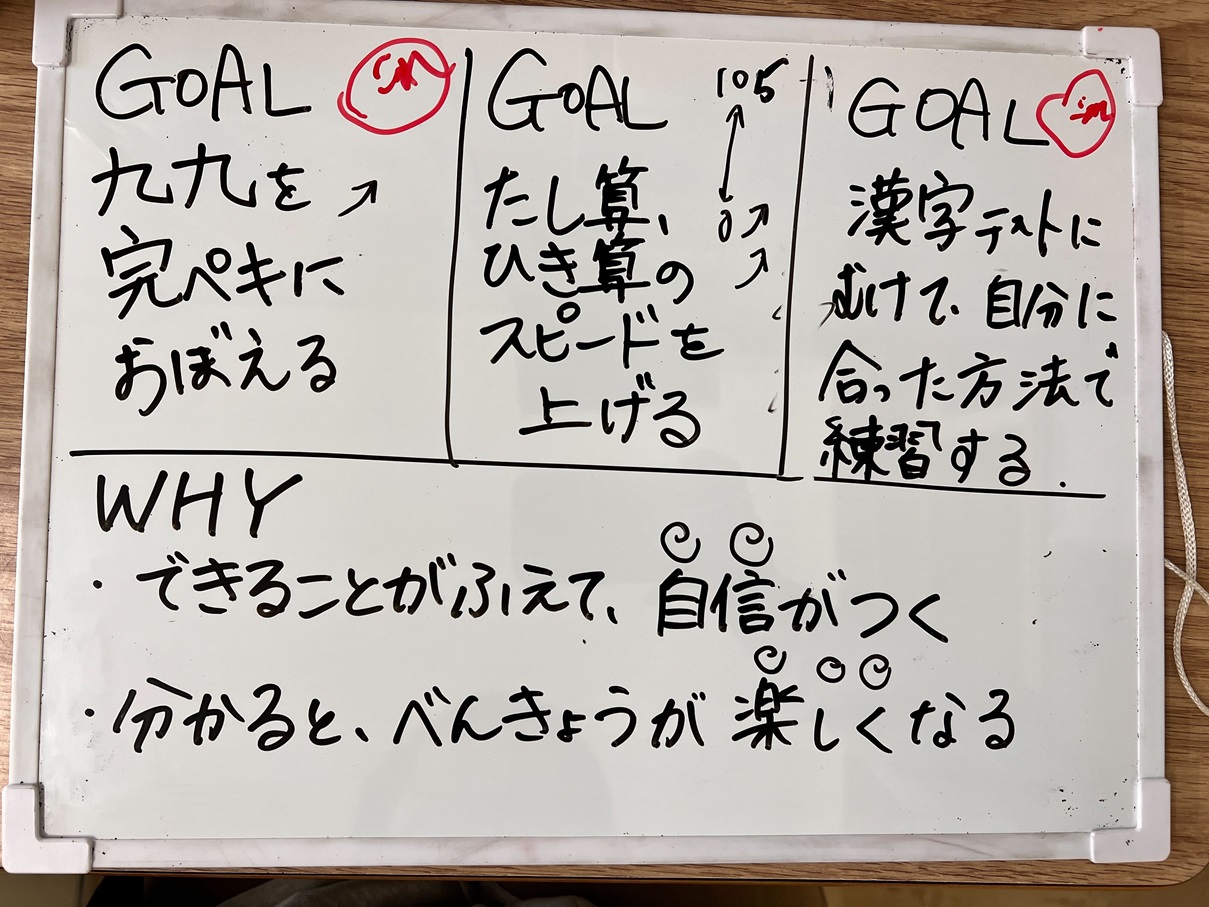 GOAL
九九を
完ペキに
おぼえる
GOAL
105
たし算、
0
ひき算の
スピードを
上げる
GOAL
漢字テストに
むけて、自分に
合った方法で
練習する.
WHY
・できることがふえて、自信がつく
・分かると、べんきょうが楽しくなる